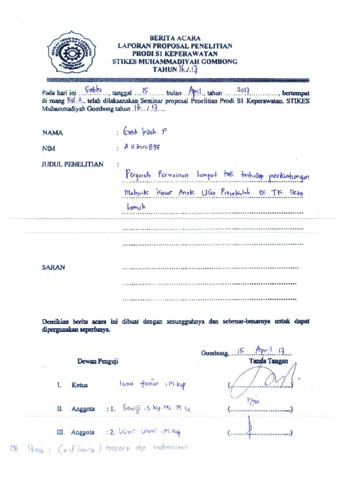 BERITA ACARA
LAPORAN PROPOSAL PENELITIAN
PRODI S1 KEPERAWATAN
STIKES MUHAMMADIYAH GOMBONG
TAHUN 16/17
Pada hari ini Sabtu, tanggal 15 bulan April, tahun 2017, bertempat
di ruang, telah dilaksanakan Seminar proposal Penelitian Prodi S1 Keperawatan, STIKES
Muhammadiyah Gombong tahun 16/17
NAMA : Indah P
NIM :
JUDUL PENELITIAN :
Pengaruh Permainan lompat tali terhadap perkembangan
Motorik Kasar Anak Usia Prasekolah Di TK Desa
SARAN
Demikian berita acara ini dibuat dengan sesungguhnya dan sebenar-benarnya untuk dapat
dipergunakan seperlunya.
Gombong, 15 April 17
Dewan Penguji Tanda Tangan
I. Ketua M.Kep (
II. Anggota : 1. Sawiji S.Kep.Ns M.Sc (
III. Anggota : 2. M.Kep (